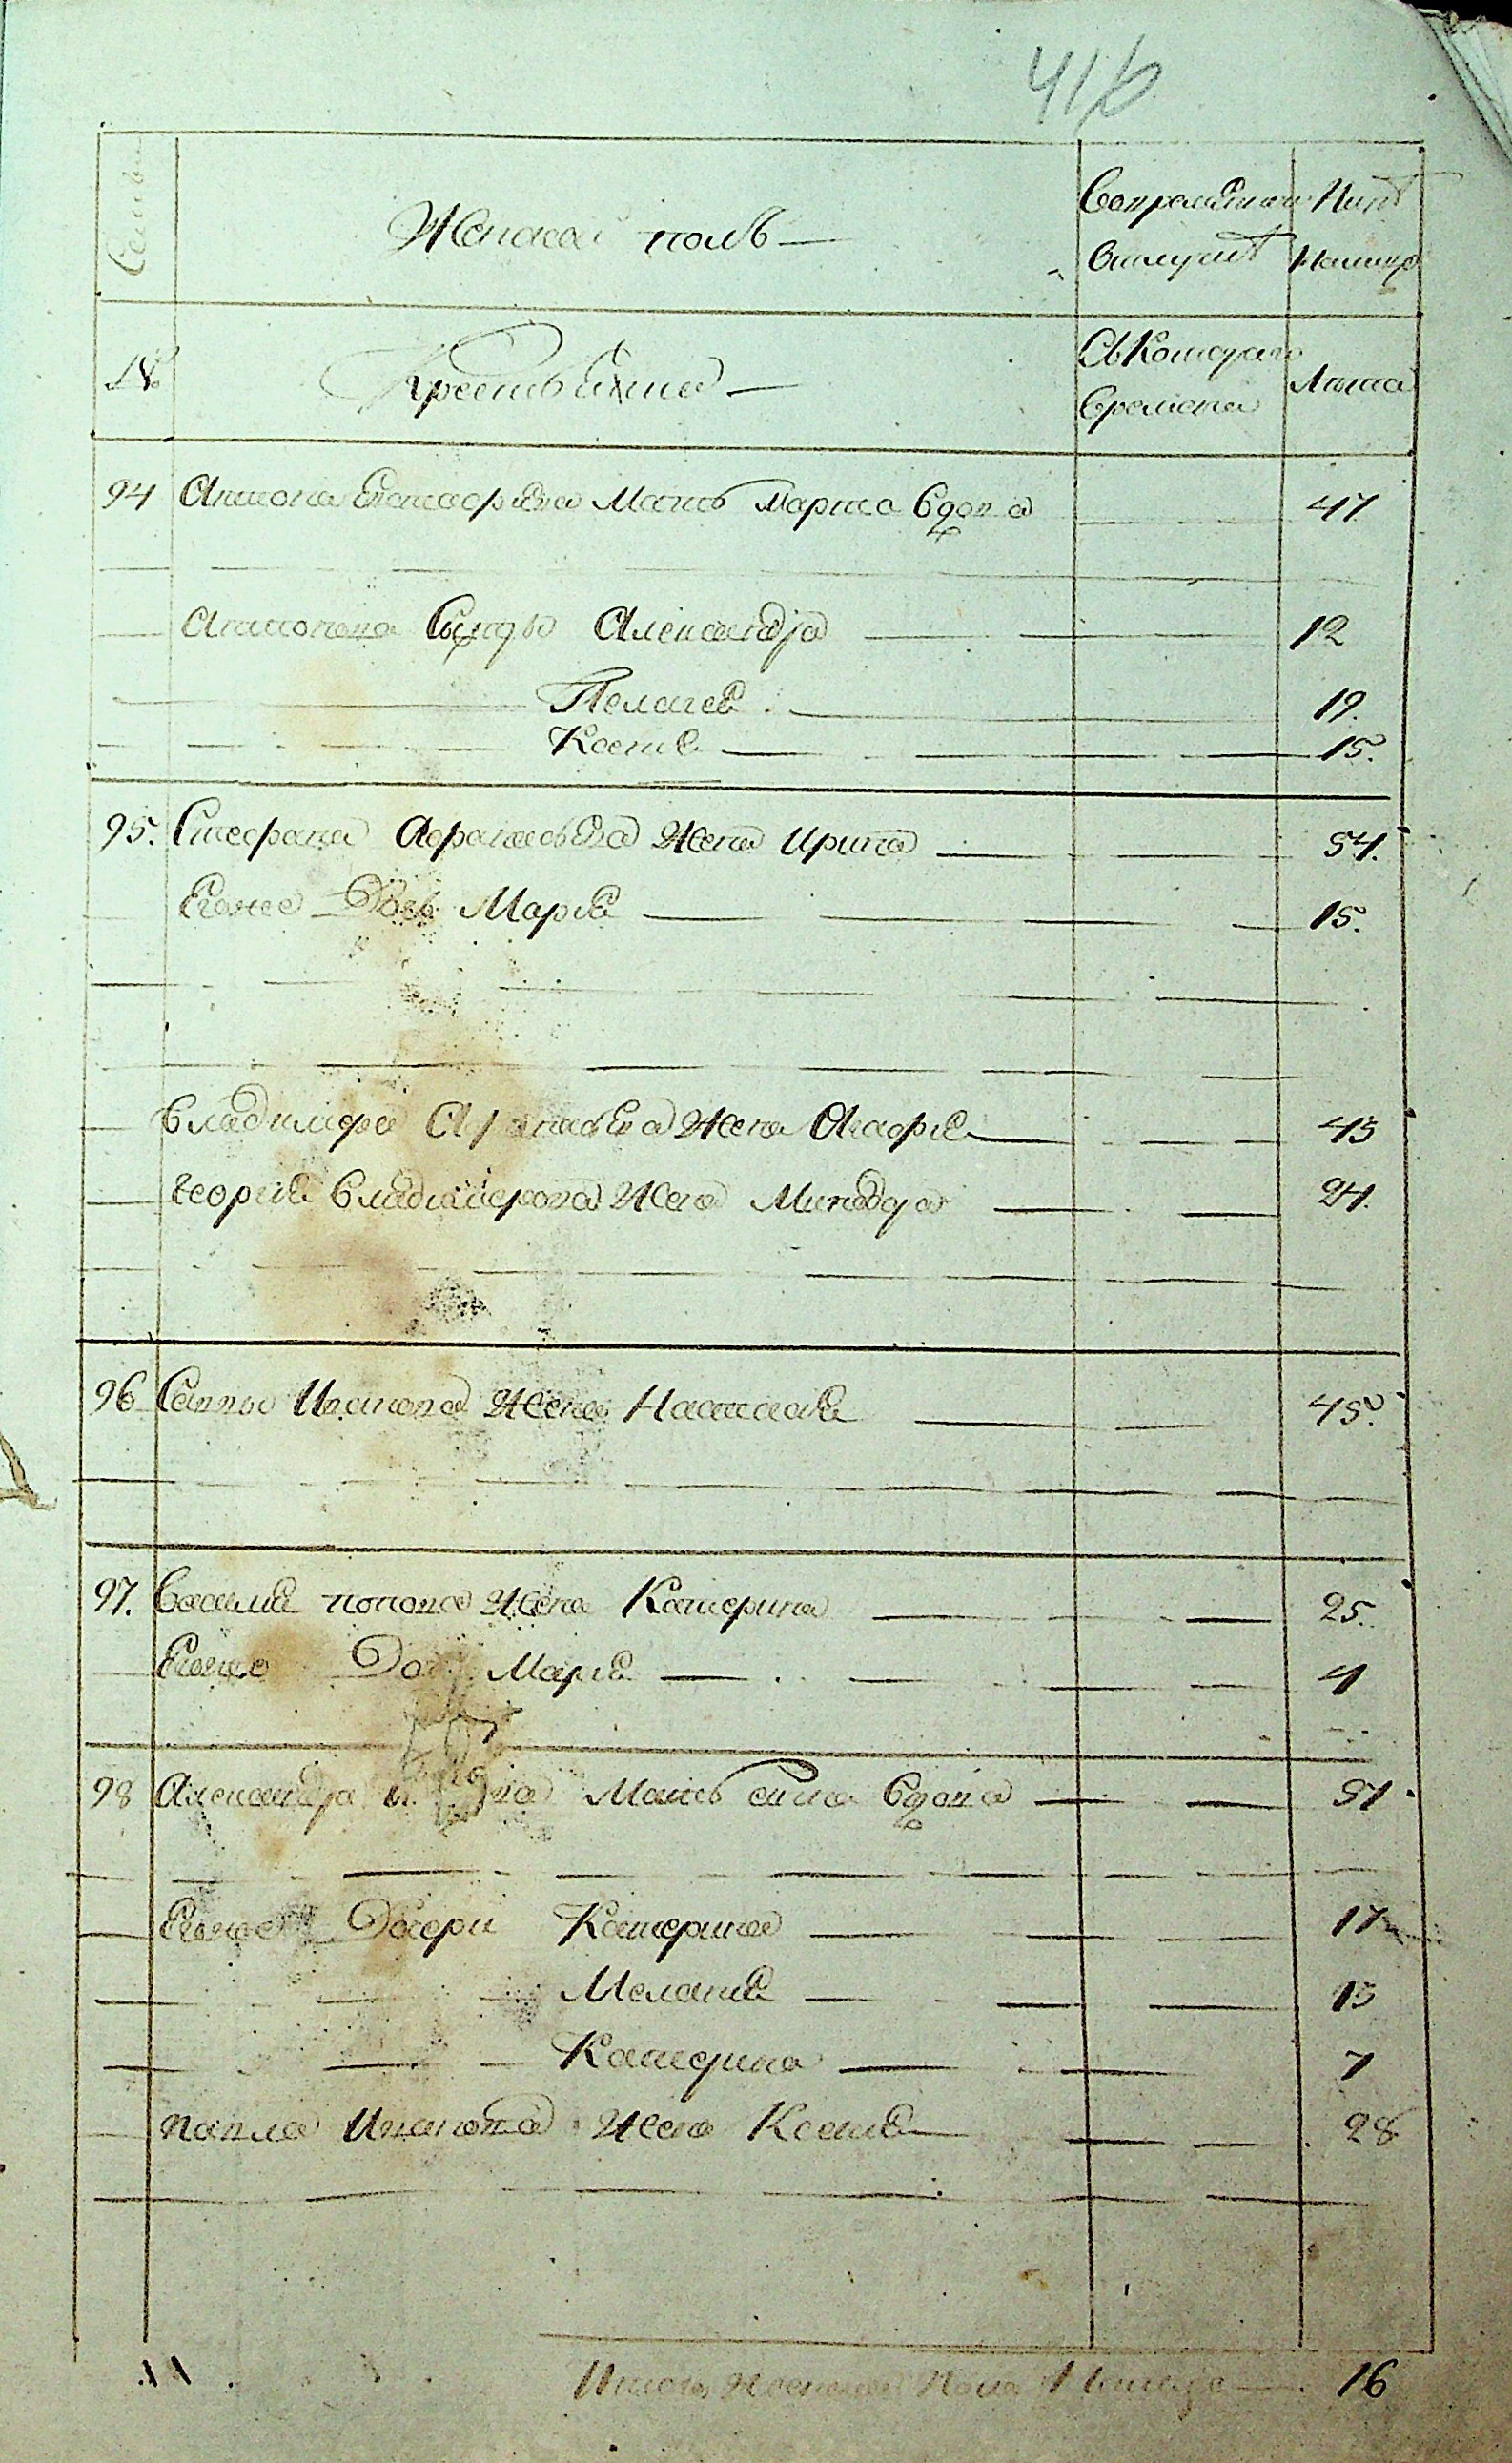 416
Семьи
Женской полъ
Во временной отлучке
Ныне налицо
№
Крестьяне
Съ Которого времени
Лета
94 Антона Евстафиева Мать Марта вдова 47.
Антонова Сестры Александра 12
Пелагея 19.
Ксения 15.
95. Стефана Афанасьева Жена Ирина 54.
Его же Дочь Мария 15.
Владимира Афанасьева Жена Агафия 45
Георгия Владимерова Жена Минодора 24.
96 Саввы Иванова Жена Настасия 45.
97. Василия Попова Жена Катерина 25.
Его же Дочь Мария 4
98 Александра Мать вдова 51
Его же Дочери Катерина 17
Мелания 13
Катерина 7
Павла Иванова Жена Ксения 28
Итого Женского Пола Налицо 16